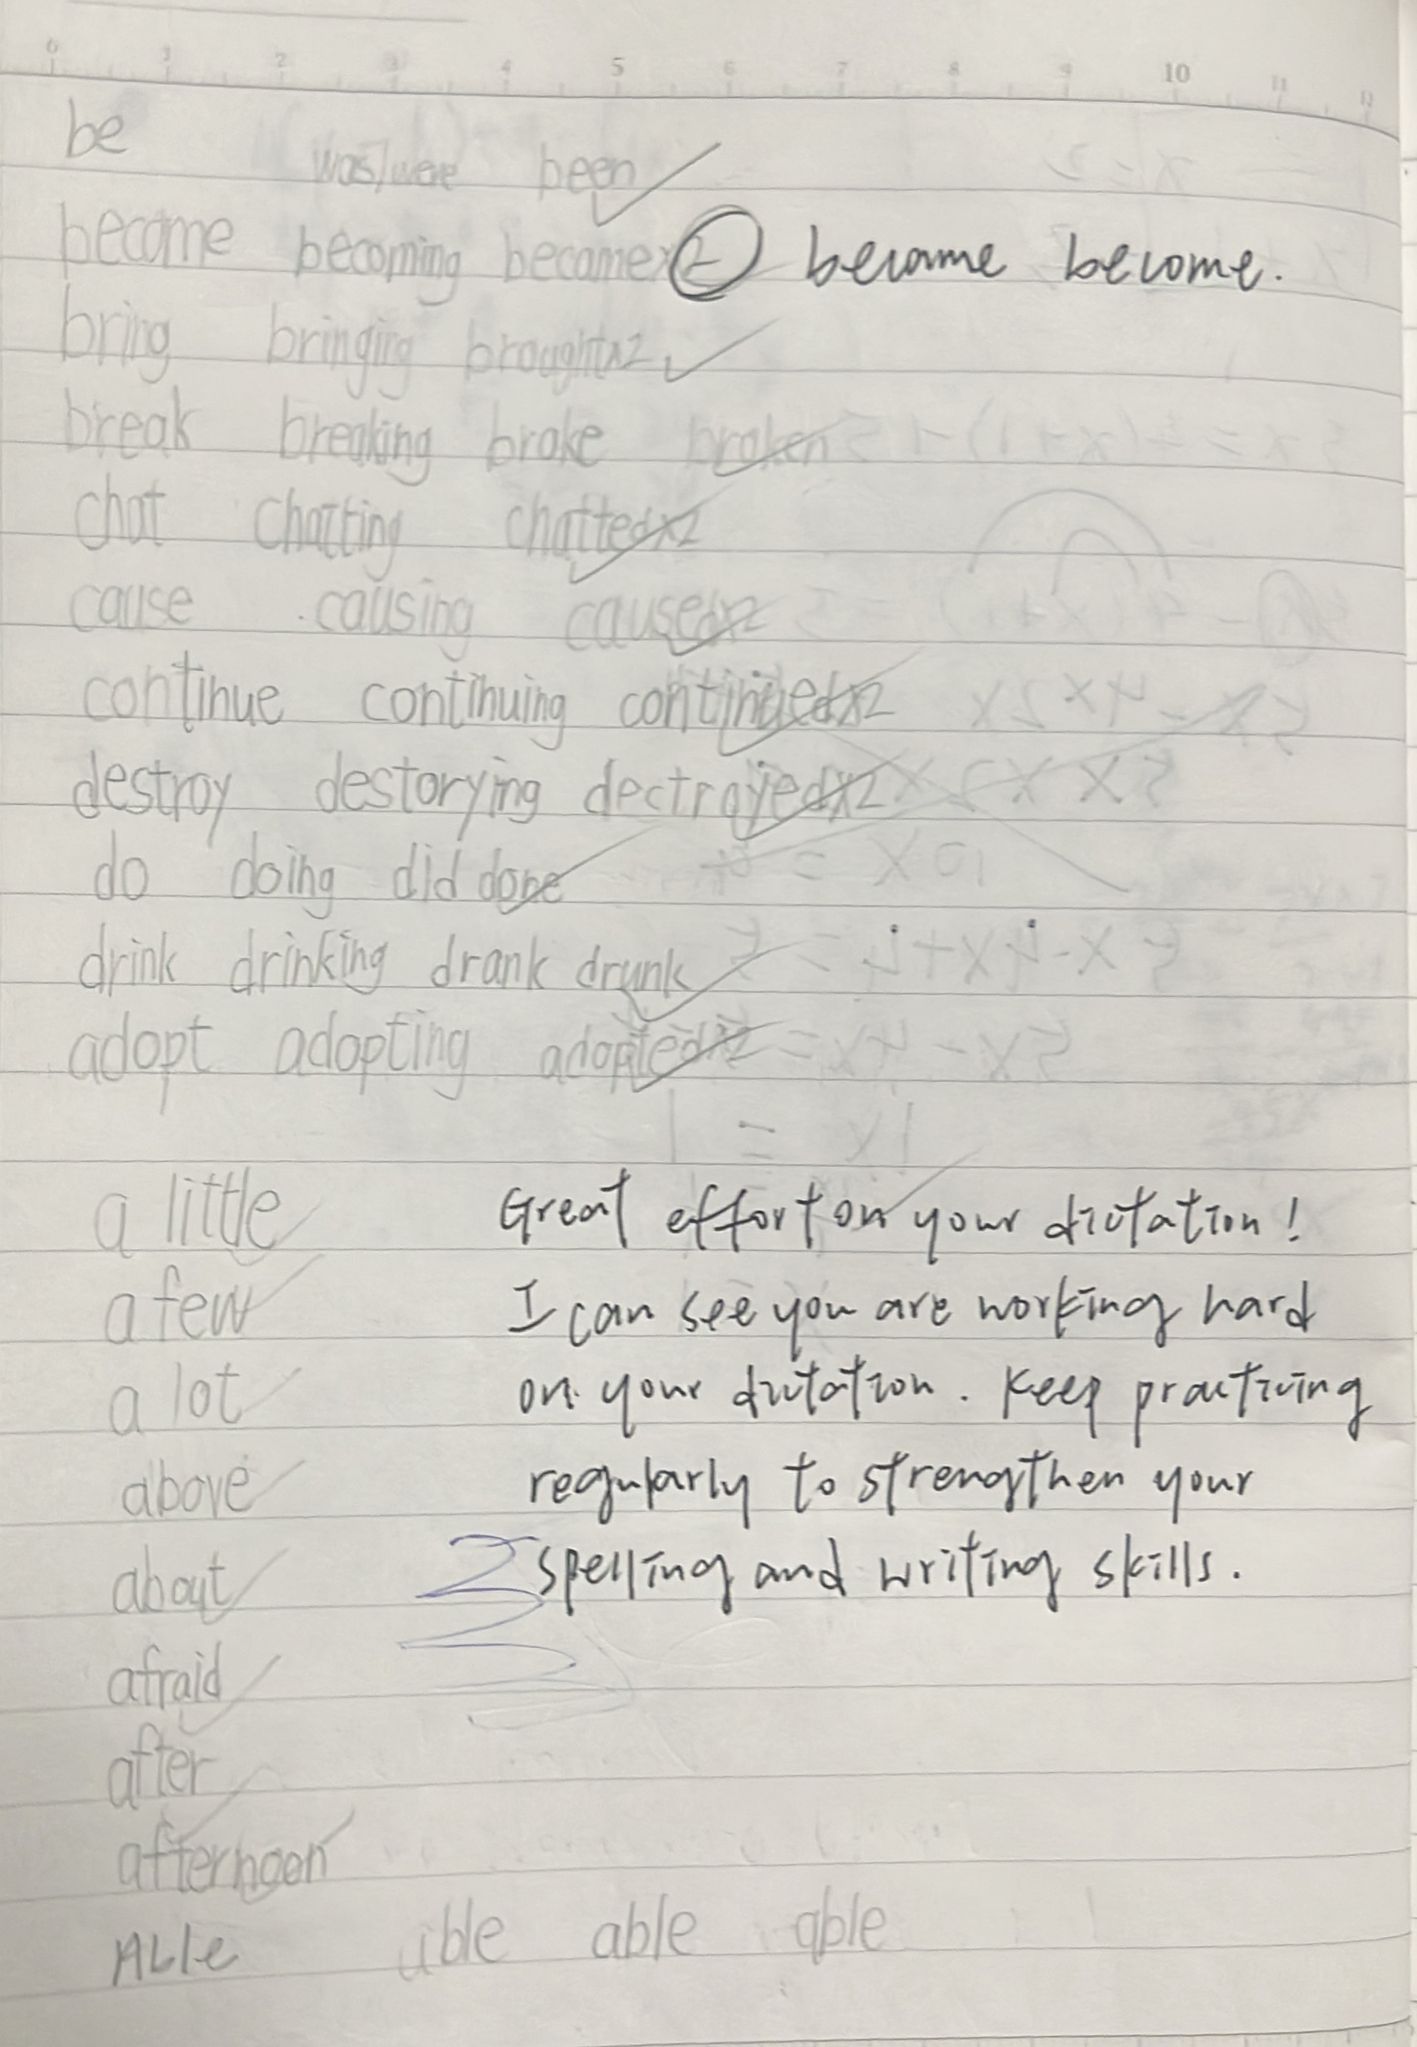 0 1 2 3 4 5 6 7 8 9 10 11 12
be was/were been
become becoming became x2 became become.
bring bringing brought x2
break breaking broke broken
chat chatting chatted x2
cause causing caused x2
continue continuing continued x2
destroy destorying dectroyed x2
do doing did done
drink drinking drank drunk
adopt adopting adopted x2
a little Great effort on your dictation!
a few I can see you are working hard
a lot on your dictation. Keep practicing
above regularly to strengthen your
about spelling and writing skills.
afraid
after
afternoon
able able